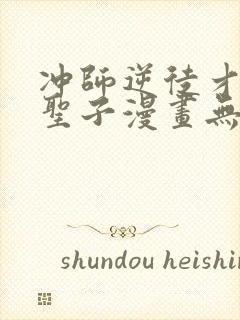 冲師逆徒才
聖子漫畫無
shundou heishin